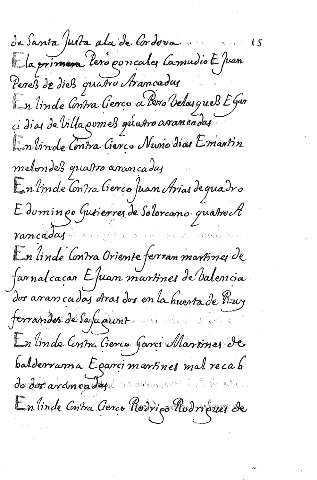 de Santa Justa ala de Cordova 15
E la primera Pero gonçales Camudio E Juan
Peres de dies quatro Arancadas
En linde Contra Cierço a Pero Velasques E Gar
ci dias de Villagomes quatro arancadas
En linde Contra Cierço Nuño dias E martin
melendes quatro arancadas
En linde Contra Cierço Juan Arias de quadro
E domingo Gutierres de Solorcano quatro A
rancadas
En linde Contra Oriente ferran martines de
farnalcaçar E Juan martines de Valencia
dos arançadas otras dos en la huerta de Ruy
ferrandes de Safagunt
En linde Contra Cierco Garci Martines de
balderrama E garci martines mal recab
do dos arançadas
En linde Contra Cierço Rodrigo Rodrigues de